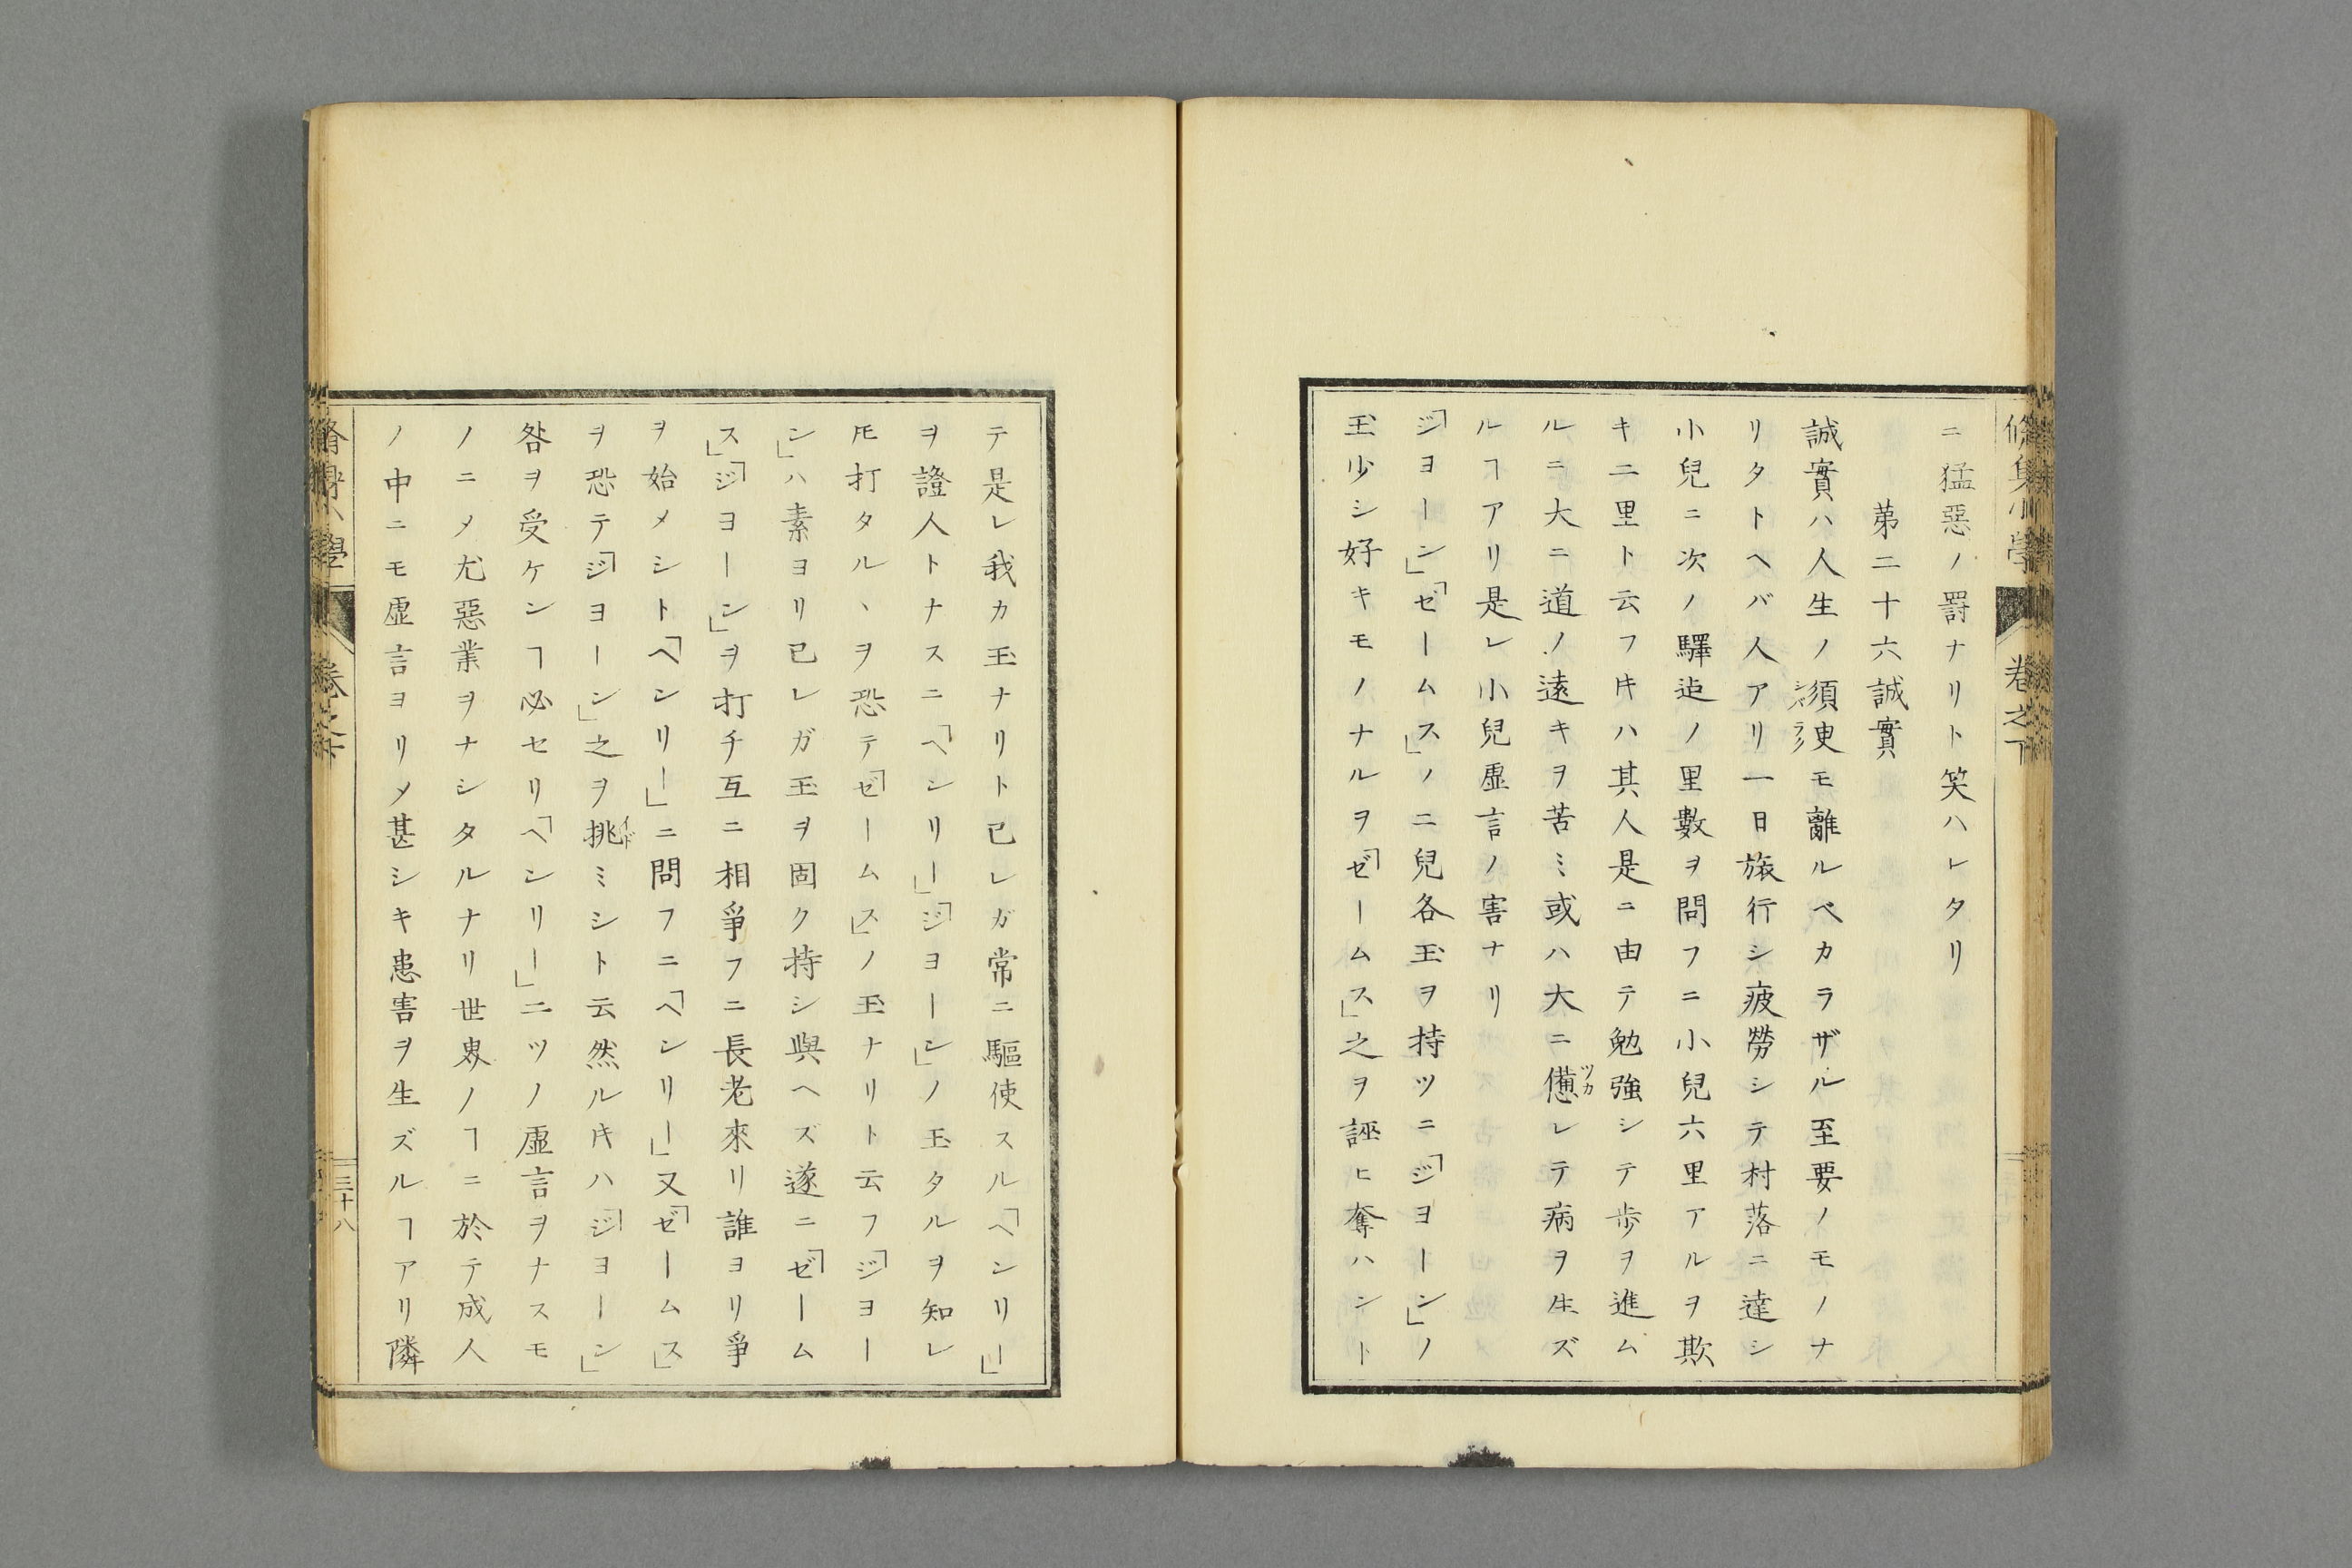 修身小學
卷之下
ニ猛惡ノ罸ナリト笑ハレタリ
第二十六誠實
誠實ハ人生ノ須臾モ離ルベカラザル至要ノモノナ
リタトヘバ人アリ一日旅行シ疲勞シテ村落ニ達シ
小兒ニ次ノ驛迠ノ里數ヲ問フニ小兒六里アルヲ欺
キ二里ト云フ㪅ハ其人是ニ由テ勉強シテ歩ヲ進ム
ルニ大ニ道ノ遠キヲ苦ミ或ハ大ニ憊レテ病ヲ生ズ
ルヿアリ是レ小兒虛言ノ害ナリ
「ジヨーン」「ゼームス」ノ二兒各玉ヲ持ツニ「ジヨーン」ノ
玉少シ好キモノナルヲ「ゼームス」之ヲ誣ヒ奪ハント
テ是レ我カ玉ナリト已レガ常ニ驅使スル「ヘンリー」
ヲ證人トナスニ「ヘンリー」「ジヨーン」ノ玉タルヲ知レ
𪜈打タルヽヲ恐テ「ゼームス」ノ玉ナリト云フ「ジヨー
ン」ハ素ヨリ已レガ玉ヲ固ク持シ與ヘズ遂ニ「ゼーム
ス」「ジヨーン」ヲ打チ互ニ相爭フニ長老來リ誰ヨリ爭
ヲ始メシト「ヘンリー」ニ問フニ「ヘンリー」又「ゼームス」
ヲ恐テ「ジヨーン」之ヲ挑ミシト云然ル㪅ハ「ジヨーン」
咎ヲ受ケンヿ必セリ「ヘンリー」二ツノ虛言ヲナスモ
ノニメ尤惡業ヲナシタルナリ世界ノヿニ於テ成人
ノ中ニモ虛言ヨリメ甚シキ患害ヲ生ズルヿアリ隣
脩身小學
卷之下
三十八